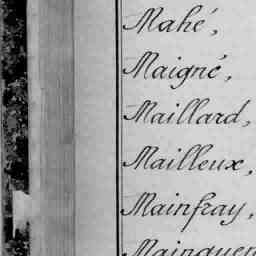 Mahé,
Maigné,
Maillard,
Mailleux,
Mainfray,